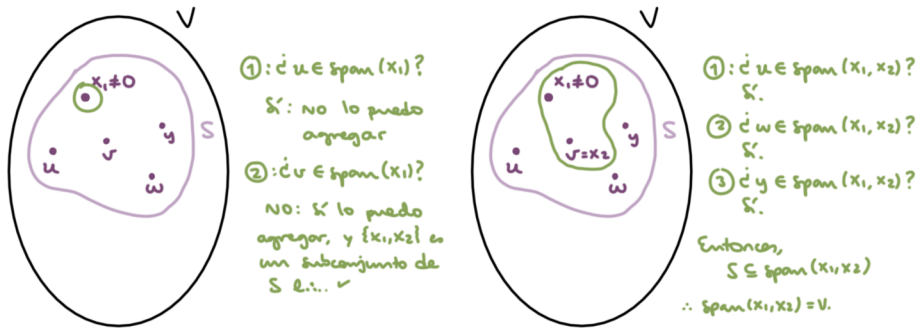 V
x₁≠0
S
u
v
y
w
①: ¿u ∈ span(x₁)?
Sí: NO lo puedo
agregar
②: ¿v ∈ span(x₁)?
NO: Sí lo puedo
agregar, y {x₁,x₂} es
un subconjunto de
S l.i. ✓
V
x₁≠0
S
u
v=x₂
y
w
①: ¿u ∈ span(x₁, x₂)?
Sí.
② ¿w ∈ span(x₁, x₂)?
Sí.
③ ¿y ∈ span(x₁, x₂)?
Sí.
Entonces,
S ⊆ span(x₁,x₂)
∴ span(x₁,x₂) = V.